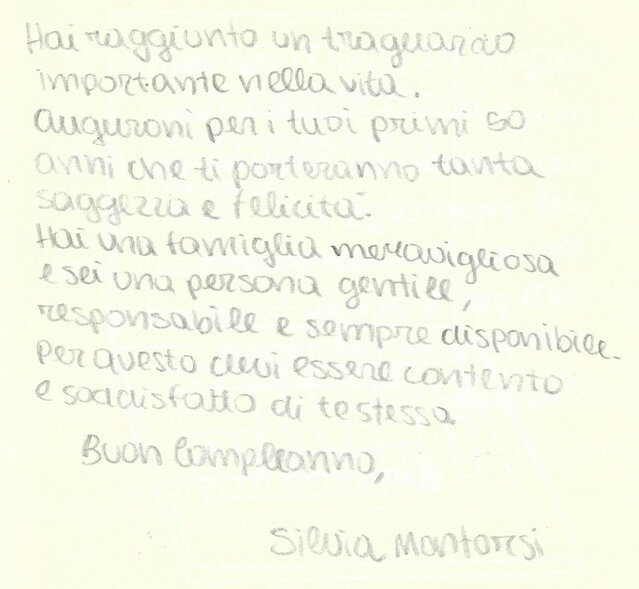 Hai raggiunto un traguardo
importante nella vita.
Auguroni per i tuoi primi 50
anni che ti porteranno tanta
saggezza e felicità.
Hai una famiglia meravigliosa
e sei una persona gentile,
responsabile e sempre disponibile.
Per questo devi essere contento
e soddisfatto di te stessa.
Buon Compleanno,
Silvia Montorsi